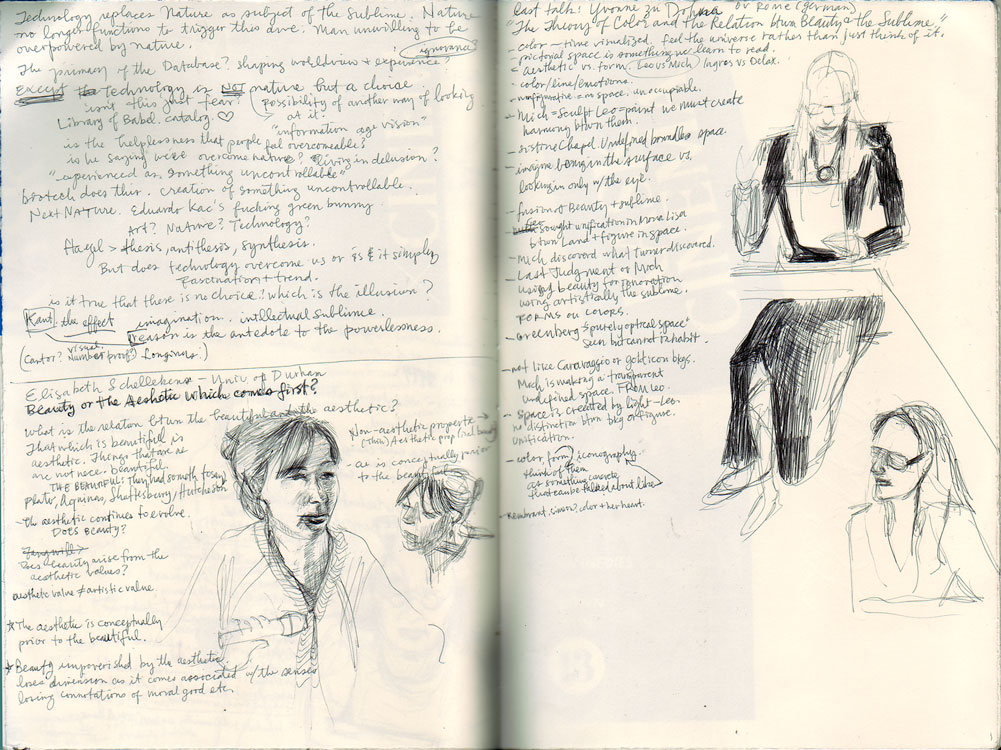 Technology replaces Nature as subject of the Sublime. Nature
no longer functions to trigger this awe. Man unwilling to be
overpowered by nature.
ignorance
The primacy of the Database? shaping worldview & experience
EXCEPT the technology is NOT nature but a choice
isn't this just fear? (possibility of another way of looking
at it.
Library of Babel. catalog. ♡
"information age vision"
is the helplessness that people feel overcomeable?
is he saying we've overcome nature? living in delusion?
"experienced as something uncontrollable"
biotech does this. creation of something uncontrollable.
Next NATURE. Eduardo Kac's fucking green bunny
Art? Nature? Technology?
Hegel > thesis, antithesis, synthesis.
But does technology overcome us or is it simply
Fascination + trend.
is it true that there is no choice? which is the illusion?
Kant. the effect imagination. intellectual sublime.
reason is the antedote to the powerlessness.
(Cantor? visual Number proof?) Longinus.)
Elisabeth Schellekens - Univ of Durham
Beauty or the Aesthetic Which comes first?
What is the relation btwn the beautiful and the aesthetic?
That which is beautiful is
aesthetic. Things that are ae
are not nece. beautiful.
THE BEAUTIFUL: They had so much to say
Plato, Aquinas, Shaftesbury, Hutcheson
- The aesthetic continues to evolve.
DOES BEAUTY?
Does beauty arise from the
aesthetic values?
aesthetic value ≠ artistic value
★ The aesthetic is conceptually
prior to the beautiful.
★ Beauty impoverished by the aesthetic.
loses dimension as it comes associated w/ the senses
losing connotations of moral good etc.
Non-aesthetic property →
(Thin) Aesthetic prop
- ae is conceptually prior
to the beautiful
Last talk: Yvonne zu Dohna or Rome (German)
"The Theory of Color and the Relation btwn Beauty & the Sublime."
- color - time visualized. feel the universe rather than just think of it.
- pictorial space is something we learn to read.
- aesthetic vs. form. Leo vs Mich) Ingres vs Delax.
- color/line/emotions.
- space. un occupiable.
- Mich = Sculpt Leo = paint we must create
harmony btwn them.
- Sistine Chapel. Undefined boundless space
- imagine being in the surface vs.
looking in only w/ the eye.
- fusion of Beauty + sublime.
Leo sought unification in Mona Lisa
btwn Land + figure in space.
- Mich discoverd what Turner discovered.
- Last Judgment or Mich
using beauty for
using artistically the sublime.
FORMS or COLORS.
- Greenberg "purely optical space"
seen but cannot inhabit.
- not like Caravaggio or gold icon bkgs.
Mich is making a transparent
undefined space. FROM Leo.
- Space is created by light - Leo.
no distinction btwn bkg or figure.
unification.
- color, form, iconography.
think of them
as something
that can be talked about like
- Rembrant. color + her heart.